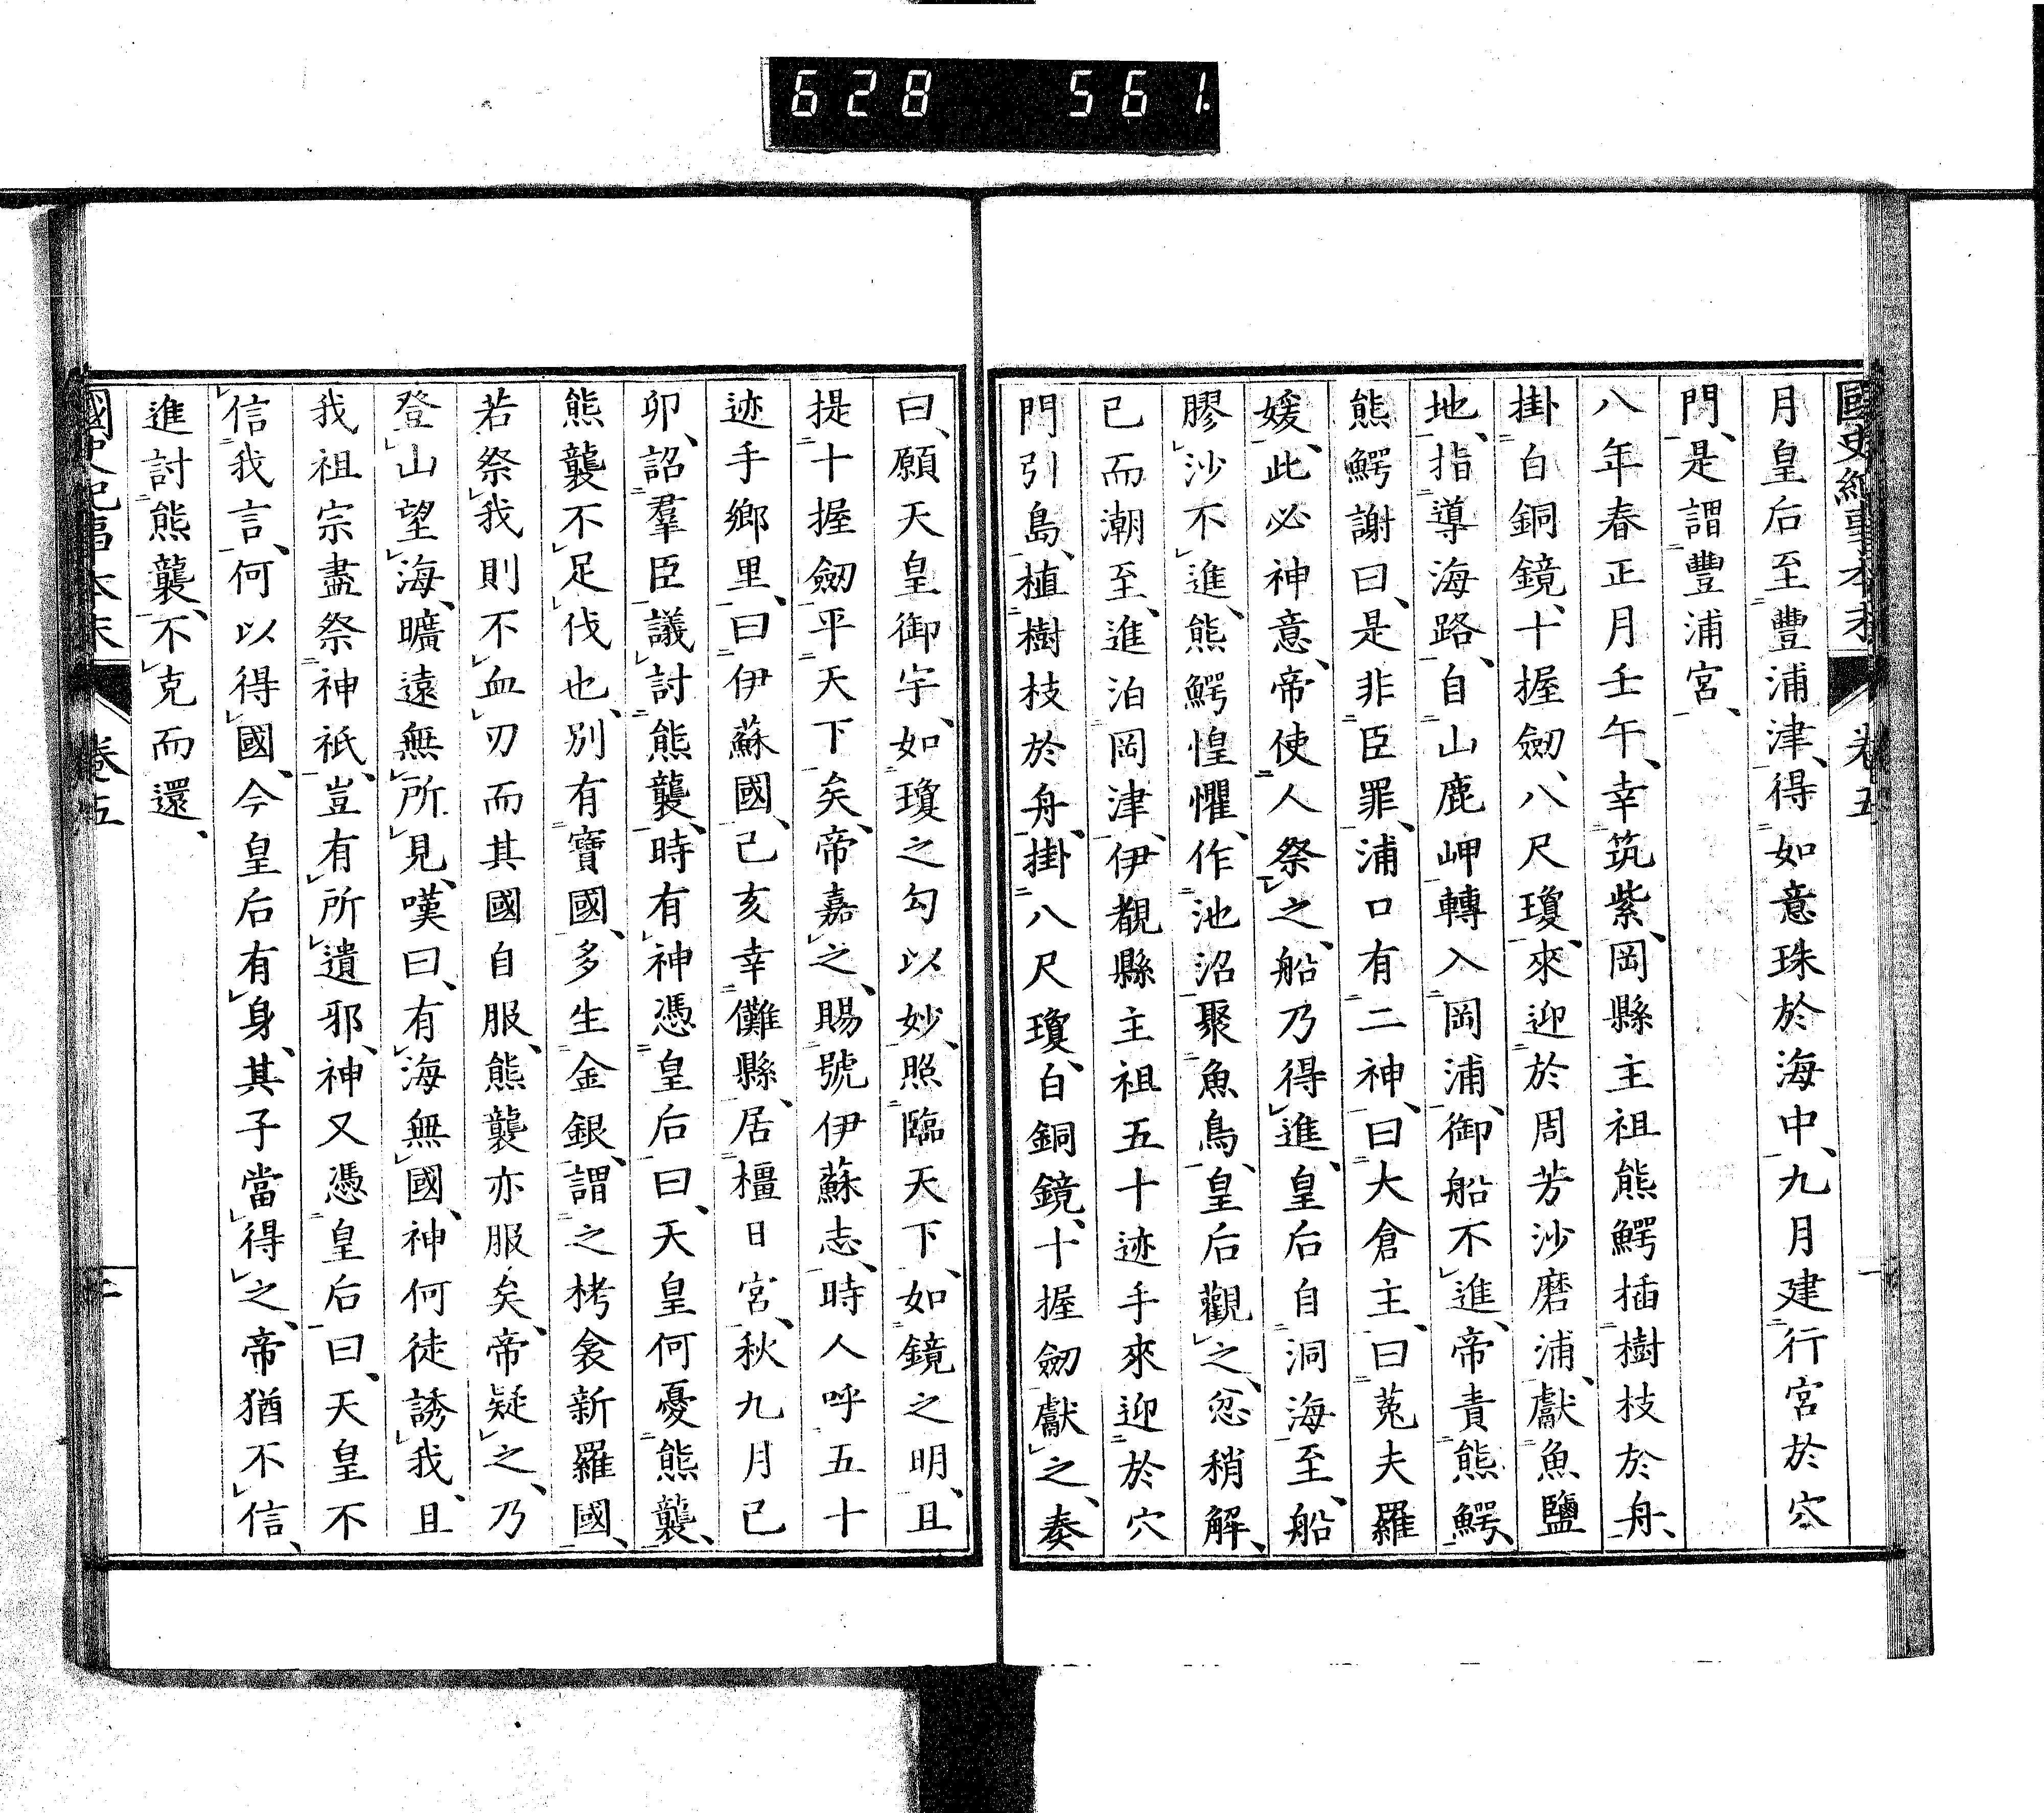 628 561.
國史紀事本末 卷五
月皇后至豐浦津、得如意珠於海中、九月建行宮於穴
門、是謂豐浦宮、
八年春正月壬午、幸筑紫、岡縣主祖熊鰐插樹枝於舟、
掛白銅鏡、十握劒、八尺瓊、來迎於周芳沙磨浦、獻魚鹽
地、指導海路、自山鹿岬轉入岡浦、御船不進、帝責熊鰐、
熊鰐謝曰、是非臣罪、浦口有二神、曰大倉主、曰菟夫羅
媛、此必神意、帝使人祭之、船乃得進、皇后自洞海至、船
膠沙不進、熊鰐惶懼、作池沼聚魚鳥、皇后觀之、忿稍解、
已而潮至、進泊岡津、伊覩縣主祖五十迹手來迎於穴
門引島、植樹枝於舟、掛八尺瓊、白銅鏡、十握劒獻之、奏
曰、願天皇御宇、如瓊之勾以妙、照臨天下、如鏡之明、且
提十握劒平天下矣、帝嘉之、賜號伊蘇志、時人呼五十
迹手鄉里、曰伊蘇國、己亥幸儺縣、居橿日宮、秋九月己
卯、詔羣臣議討熊襲、時有神憑皇后曰、天皇何憂熊襲、
熊襲不足伐也、別有寶國、多生金銀、謂之栲衾新羅國、
若祭我則不血刃而其國自服、熊襲亦服矣、帝疑之、乃
登山望海、曠遠無所見、嘆曰、有海無國、神何徒誘我、且
我祖宗盡祭神祇、豈有所遺邪、神又憑皇后曰、天皇不
信我言、何以得國、今皇后有身、其子當得之、帝猶不信、
進討熊襲、不克而還、
國史紀事本末 卷五 二